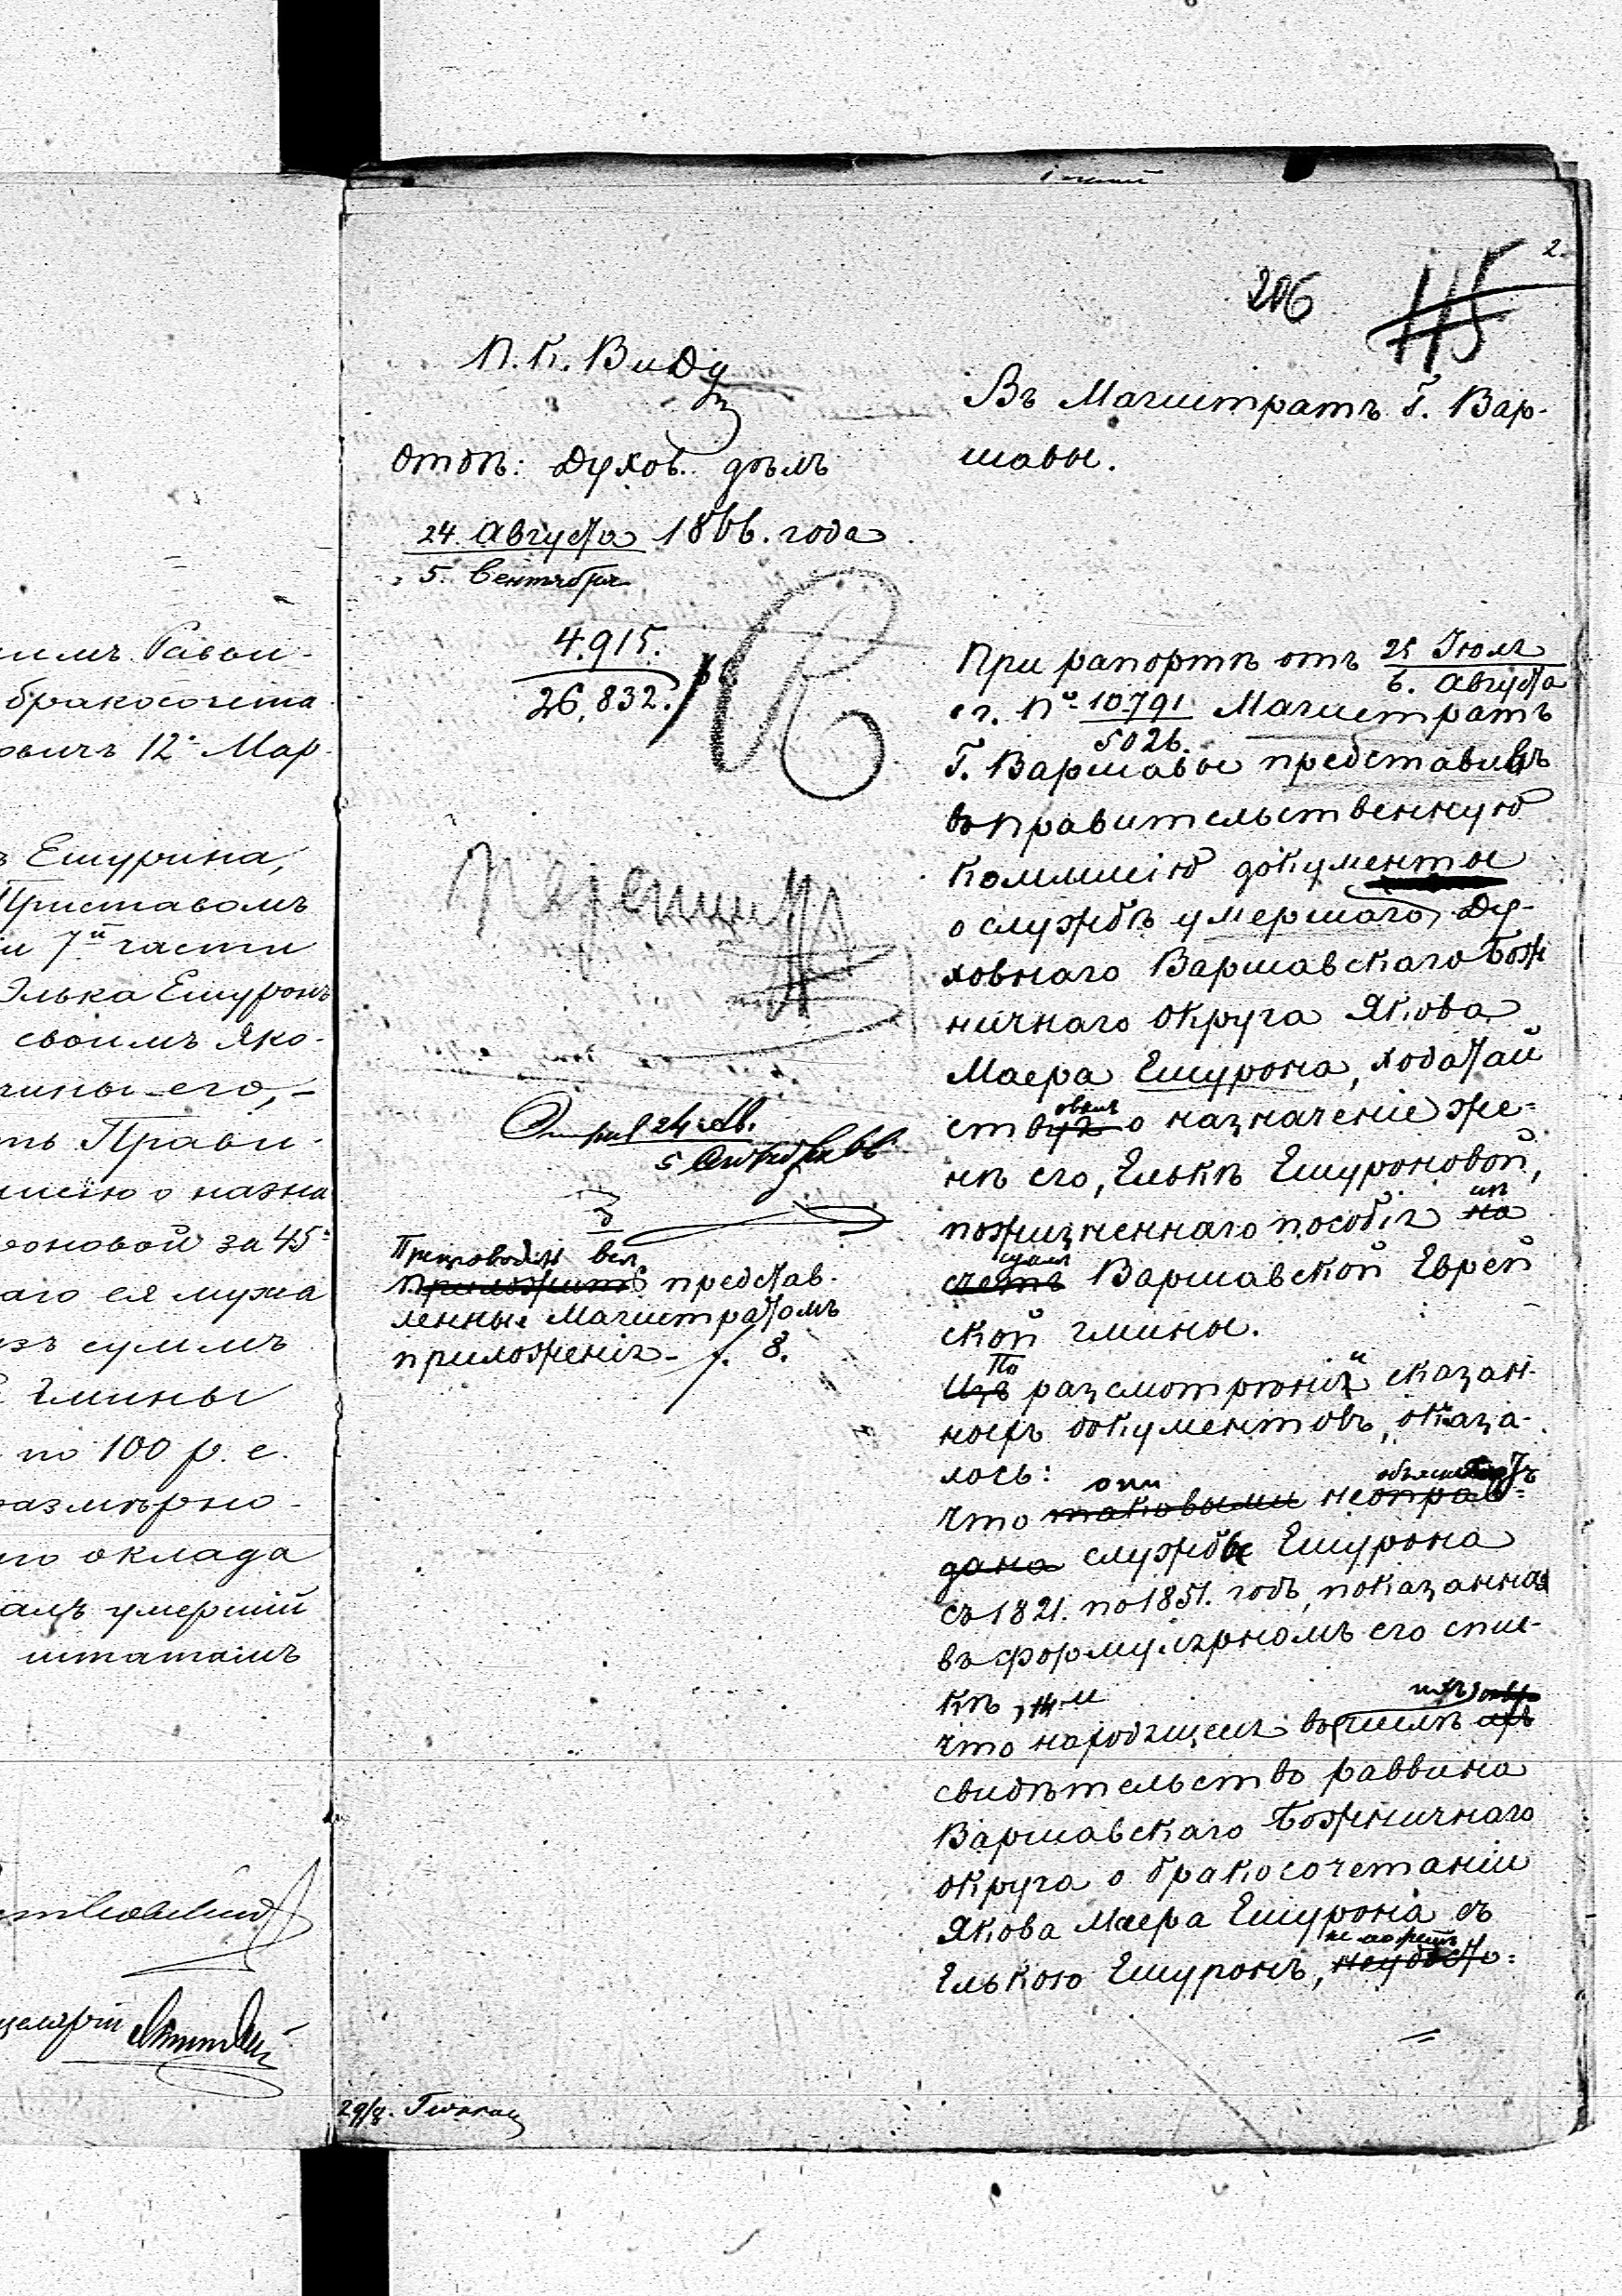 нимъ Равви-
бракосочета
овичъ 12го Мар-
ъ Ешурина,
Приставомъ
и 7й части
Элька Ешуронъ
своимъ Яко-
чины его,-
ть Прави-
мисію о назна
роновой за 45
аго ея мужа
изъ суммъ
гмины
по 100 р. с.
размѣрно-
го оклада
алъ умершій
штатамъ
2.
206
115
П. К. В и Д
Отдѣл: Духов. дѣлъ
24. Августа 1866. года
5. Сентября
4.915.
26,832.
Отпр. 24 Ав.
5 Сентября 66
Препроводить вел.
приложить представ-
ленные Магистратомъ
приложенія - f. 8.
29/8.
Въ Магистратъ Г. Вар-
шавы.
При рапортѣ отъ 25 Іюля
6. Августа
с г. № 10791 Магистратъ
5026.
Г. Варшавы представилъ
въ правительственную
коммисію документы
о службѣ умершаго, Ду-
ховнаго Варшавскаго Бож
ничнаго округа Якова
Маера Ешурона, ходатай
ству о назначеніе же-
нѣ его, Елькѣ Ешуроновой,
изъ
пожизненнаго пособія на
суммъ
счетъ Варшавской Еврей
ской гмины.
По
Изъ разсмотрѣніи сказан-
ныхъ документовъ, оказа-
лось:
они
что таковыми неоправ-
дана службы Ешурона
съ 1821. по 1851. годъ, показанная
въ формулярномъ его спис-
кѣ, и
что находящееся въ числѣ ихъ
свидѣтельство раввина
Варшавскаго Божничнаго
округа о бракосочетаніи
Якова Маера Ешурона съ
не можетъ
Елькою Ешуронъ, неудосто-